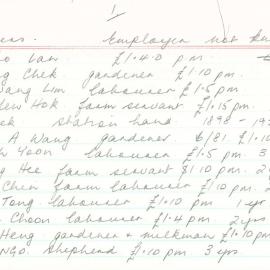 1
Employer not
Law £1.4.0 p.m.
Chek gardener £1.10 pm.
Lim labourer £1.5 pm.
Hok farm servant £1.15 pm.
station hand 1898 -
A Wang gardener 6/81 £1.10
Yoon labourer £1.5 pm. 3
Hee farm servant £1.10 pm. 2
Chen farm labourer £1.10 pm. 2
Tong labourer £1.10 pm 1 yr
Choon labourer £1.4 pm 2 yrs
Heng gardener & milkman £1.10
NGO. shepherd £1.10 pm. 3 yrs.